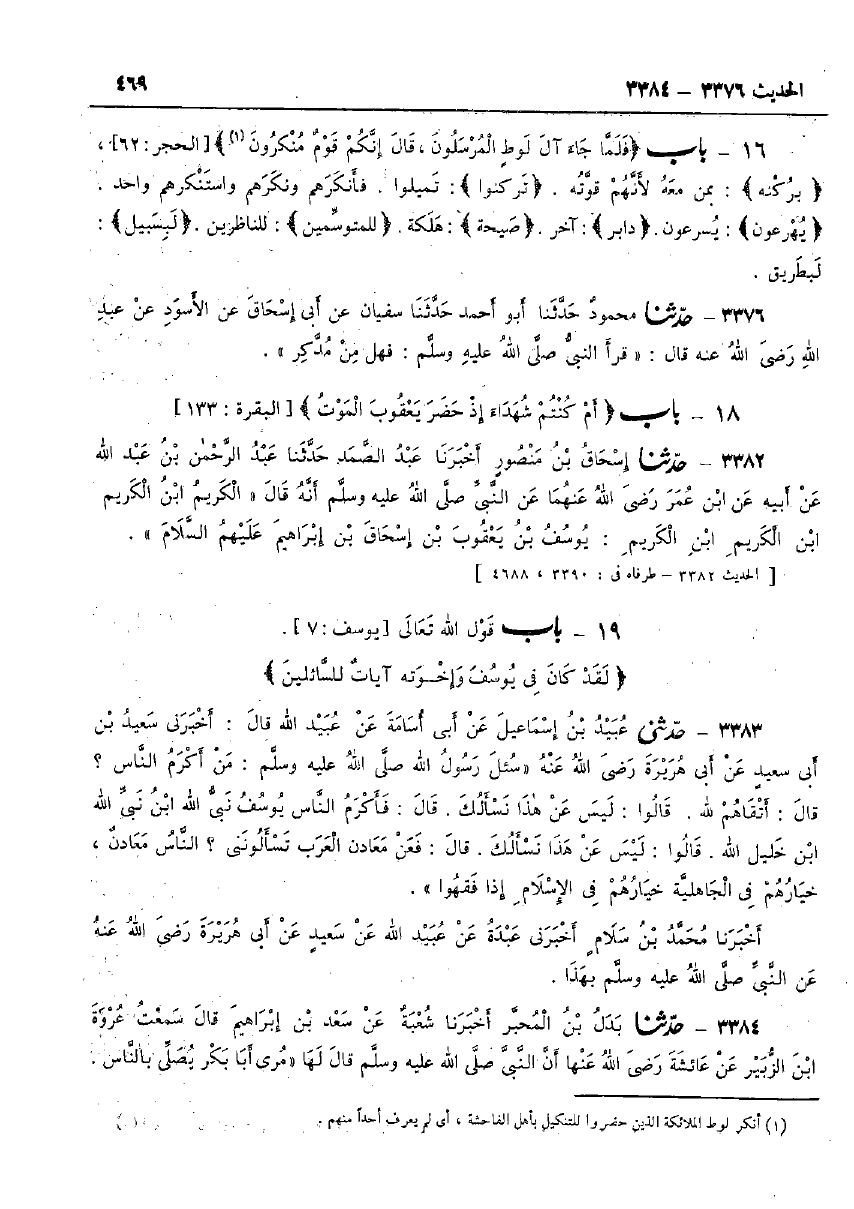 الحديث ٣٣٧٦ – ٣٣٨٤ ٤٦٩
١٦ – باب ﴿فَلَمَّا جَاءَ آلَ لُوطٍ الْمُرْسَلُونَ ، قَالَ إِنَّكُمْ قَوْمٌ مُنْكَرُونَ (١)﴾ [ الحجر : ٦٢] ،
﴿ بِرُكْنه﴾ : بمن معَهُ لأَنَّهُمْ قوَّتُه . ﴿تَركنوا ﴾: تَميلوا . فأنكَرَهم ونكَرَهم واستَنْكرهم واحد .
﴿ يُهْرعون﴾ : يُسرعون. ﴿ دابر﴾: آخر .﴿ صَيحة﴾: هَلَكة. ﴿ للمتوسِّمين﴾ : للناظرين .﴿ لَبِسَبيل﴾ :
لَبِطَريق .
٣٣٧٦ – حدّثنا محمودٌ حَدَّثَنا أبو أحمد حَدَّثَنَا سفيان عن أبى إسْحَاقَ عن الأسوَدِ عنْ عبدِ
اللهِ رَضىَ اللهُ عنه قال : « قرأ النبىُّ صلَّى اللهُ عليهِ وسلَّم : فهل مِنْ مُدَّكِر » .
١٨ – باب ﴿ أَمْ كُنْتُمْ شُهَدَاءَ إِذْ حَضَرَ يَعْقُوبَ الْمَوْتُ ﴾ [ البقرة : ١٣٣ ]
٣٣٨٢ – حدّثنا إِسْحَاقُ بْنُ مَنْصُورٍ أَخْبَرَنَا عَبْدُ الصَّمَد حَدَّثَنا عَبْدُ الرَّحْمٰن بْنُ عَبْد الله
عَنْ أَبيه عَن ابْن عُمَرَ رَضىَ اللهُ عَنهُمَا عَن النَّبىِّ صلَّى اللهُ عليه وسلَّم أَنَّهُ قَالَ « الْكَريمُ ابْنُ الْكَريم
ابْن الْكَريم ابْن الْكَريم : يُوسُفُ بْنُ يَعْقُوبَ بْن إِسْحَاقَ بْن إِبْرَاهيمَ عَلَيْهمُ السَّلَامُ » .
[ الحديث ٣٣٨٢ – طرفاه فى : ٣٣٩٠ ، ٤٦٨٨ ]
١٩ – باب قَوْل الله تَعَالَى [ يوسف : ٧ ] .
﴿ لَقَدْ كَانَ فِى يُوسُفَ وَإِخْـوَته آيَاتٌ للسَّائلينَ ﴾
٣٣٨٣ – حدّثنى عُبَيْدُ بْنُ إِسْمَاعيلَ عَنْ أَبى أُسَامَةَ عَنْ عُبَيْد الله قالَ : أَخْبَرَنى سَعيدُ بْن
أَبى سعيد عَنْ أَبى هُرَيْرَةَ رَضىَ اللهُ عَنْهُ «سُئلَ رَسُولُ الله صلَّى اللهُ عليه وسلَّم : مَنْ أَكْرَمُ النَّاس ؟
قالَ : أَتْقَاهُمْ لله . قَالُوا : لَيسَ عَنْ هٰذَا نَسْأَلُكَ . قَالَ : فَأَكْرَمُ النَّاس يُوسُفُ نَبىُّ الله ابْنُ نَبىِّ الله
ابْن خَليل الله . قَالُوا : لَيْسَ عَنْ هَذَا نَسْأَلُكَ . قالَ : فَعَنْ مَعَادن الْعَرَب تَسْأَلُونَنى ؟ النَّاسُ مَعَادنٌ ،
خيَارُهُمْ فى الْجَاهليَّة خيَارُهُمْ فى الإِسْلَام إذا فَقهُوا » .
أَخْبَرَنَا مُحَمَّدُ بْنُ سَلَامٍ أَخْبَرَنى عَبْدَةُ عَنْ عُبَيْد الله عَنْ سَعيد عَنْ أَبى هُرَيْرَةَ رَضىَ اللهُ عَنهُ
عَن النَّبىِّ صلَّى اللهُ عليه وسلَّم بهَذَا .
٣٣٨٤ – حدّثنا بَدَلُ بْنُ الْمُحبَّر أَخْبَرَنا شُعْبَةُ عَنْ سَعْد بْن إِبْرَاهيمَ قالَ سَمعْتُ عُرْوَةَ
ابْنَ الزُّبَيْر عَنْ عَائشَةَ رَضىَ اللهُ عَنْها أَنَّ النَّبىَّ صلَّى الله عليه وسلَّم قالَ لَهَا «مُرى أَبَا بَكْر يُصَلِّى بالنَّاس .
(١) أنكر لوط الملائكة الذين حضروا للتنكيل بأهل الفاحشة ، أى لم يعرف أحداً منهم .